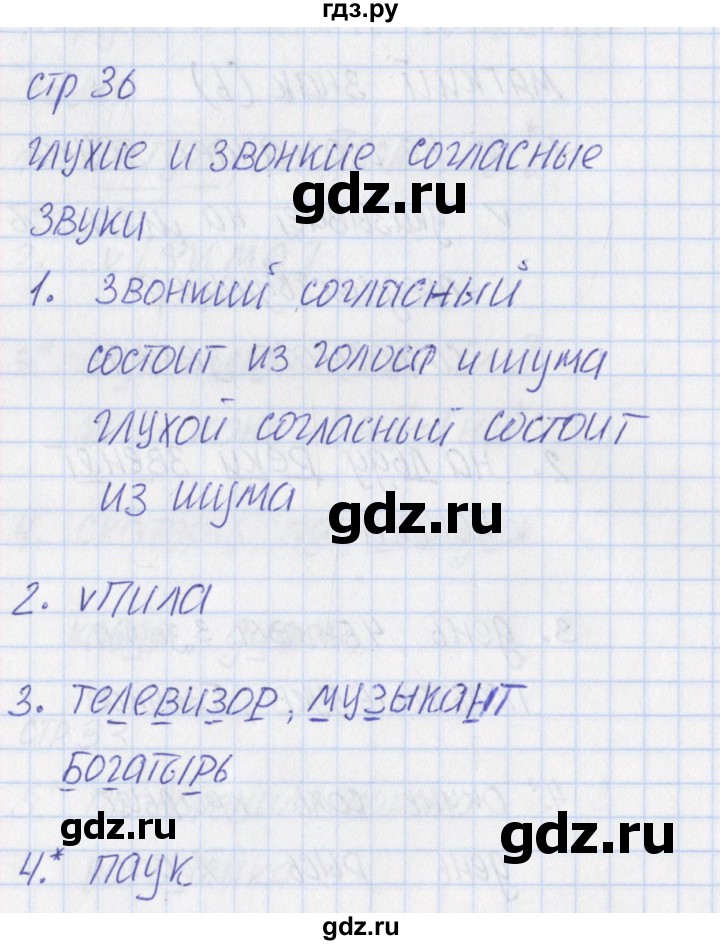 гдз.ру
стр 36
глухие и звонкие согласные
gdz.ru
звуки
1. звонкий согласный
состоит из голоса и шума
глухой согласный состоит
из шума
gdz.ru
2. vПила
3. телевизор, музыкант
богатырь
gdz.ru
gdz.ru
4.* паук
gdz.ru